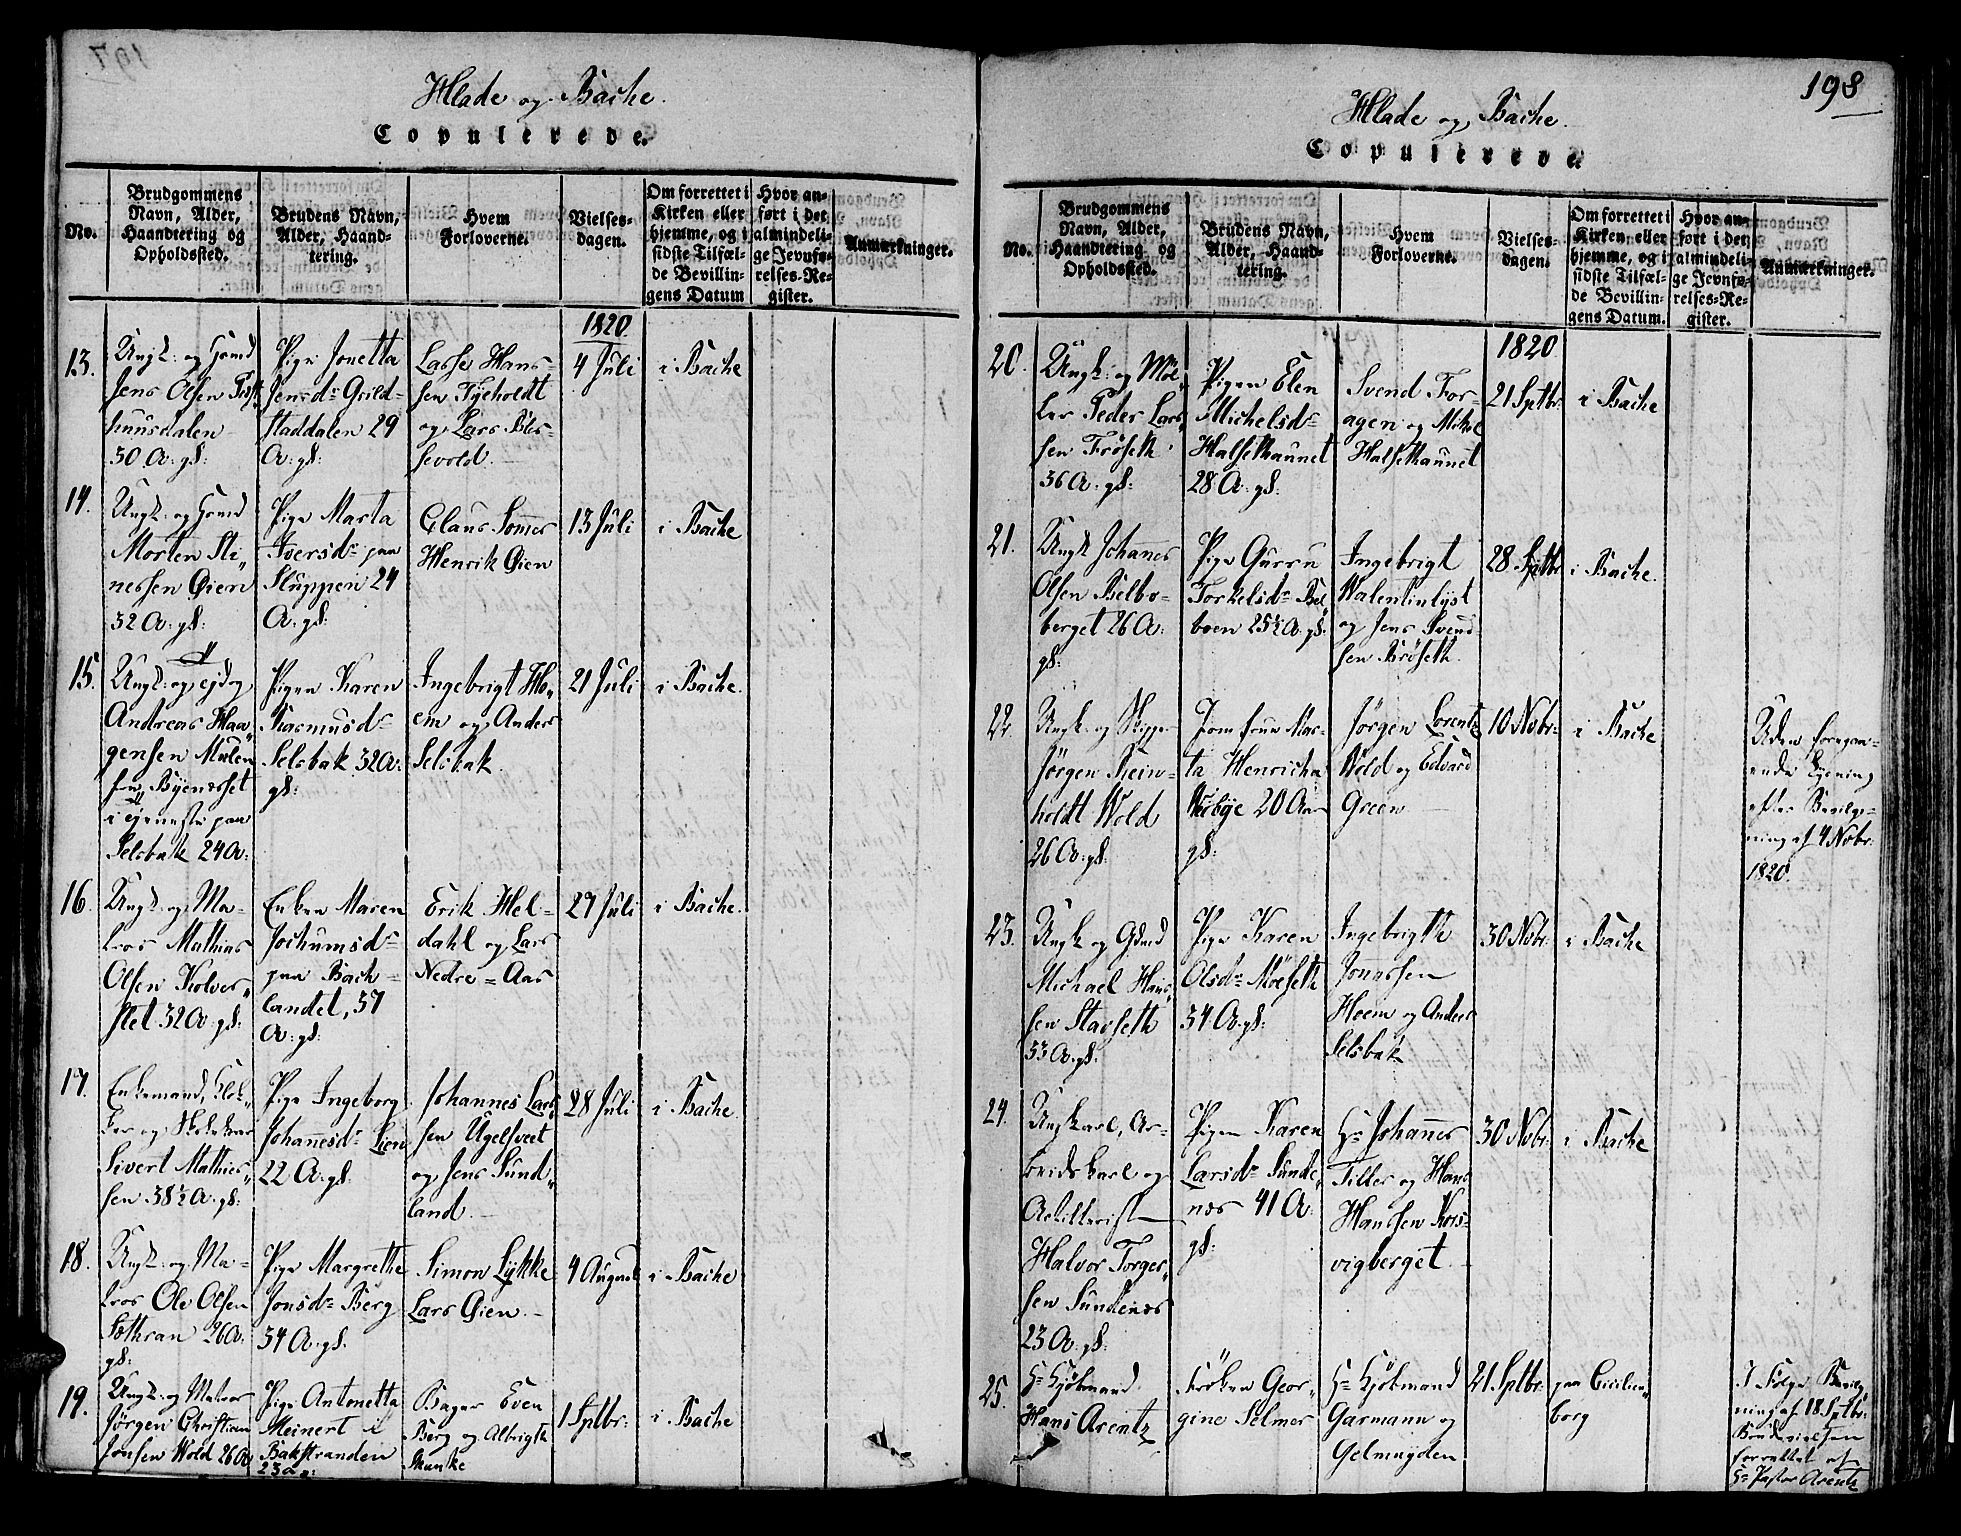 Hlade og Bache.
Copulerede.
No.
Brudgommens
Navn, Alder,
Haandtering og
Opholdssted.
Brudens Navn,
Alder, Haand-
tering.
Hvem
Forloverne.
Vielses-
dagen.
Om forrettet i
Kirken eller
hjemme, og i
sidste Tilfæl-
de Bevillin-
gens Datum
Hvor an-
ført i det
almindeli-
ge Jevnfø-
relses-Re-
gister.
Anmærkninger.
1820
13.
Ungk: og Huusmd
Jens Olsen
huusdalen
30 A: gl:
Pige Jonetta
Jensdr Grild-
staddalen 29
A: gl:
Lasse Hans-
sen Tyeholdt
og Lars Bles-
sevold.
4 Juli
i Bache
14.
Ungk: og
Morten Sti-
nessen Øien
32 A: gl:
Pige Marta
Iversdr paa
Sluppen 24
A: gl:
Claus Sommer
Henrik Øien
13 Juli
i Bache
15.
Ungk: og
Andreas Haa-
gensen Mulen
Byenæsset
i tjeneste paa
Selsbak 24 A:
Pigen Karen
Rasmusdr
Selsbak 32 A:
gl:
Ingebrigt Ho-
em og Anders
Selsbak
21 Juli
i Bache.
16.
Ungk: og Ma-
tros Mathias
Olsen Kolver-
flet 32 A: gl:
Enken Maren
Jochumsdr
paa Bach-
landet, 37
A: gl:
Erik Hel-
dahl og Lars
Nedre-Aas
27 Juli
i Bache.
17.
Enkemand, Klok-
ker og
Sivert Mathies-
sen 38½ A: gl:
Pige Ingeborg
Johannesdr Lien
22 A: gl:
Johannes Lars-
sen Ugelsveet
og Jens Sund-
land.
28 Juli
i Bache.
18.
Ungk: og Ma-
tros Ole Olsen
Sæthran 26 A:
gl:
Pige Margrethe
Jonsdr Berg
34 A: gl.
Simon Lykke
Lars Øien.
4 August
i Bache
19.
Ungk: og Matros
Jørgen Christian
Jonsen Wold 26 A
Pige Antonetta
Meinert i
Bakstranden
23
Bager Even
Berg og Albrigth
Skunke
1 Sptbr:
i Bache
198
Hlade og Bache.
Copulerede.
No.
Brudgommens
Navn, Alder,
Haandtering og
Opholdssted.
Brudens Navn,
Alder, Haand-
tering.
Hvem
Forloverne.
Vielses-
dagen.
Om forrettet i
Kirken eller
hjemme, og i
sidste Tilfæl-
de Bevillin-
gens Datum.
Hvor an-
ført i det
almindeli-
ge Jevnfø-
relses-Re-
gister.
Anmærkninger.
1820
20.
Ungk: og Møl-
ler Peder Lars-
sen Frøseth
36 A: gl:
Pigen Elen
Michelsdr
Halsethaunet
28 A: gl:
Svend For-
agen og Mikel
Halsethaunet
21 Sptbr:
i Bache
21.
Ungk Johannes
Olsen Belbo-
berget 26 A:
gl:
Pige Gurru
Torkelsdr Bel-
boen 25½ A: gl:
Ingebrigt
Walentinlyst
og Jens Svend-
sen Brøseth.
28 Sptbr
i Bache.
22.
Ungk: og Skipper
Jørgen Rein-
holdt Wold
26 A: gl:
Jomfrue Mar-
ta Henricha
20 Aar
gl:
Jørgen Lorentz
Wold og Edvard
Green
10 Novbr:
i Bache
Uden foregaa-
ende Lysning
efter Bevilg-
ning af 4 Novbr:
1820.
23.
Ungk og Gdmd
Michael Hans-
sen Stavseth
53 A: gl:
Pige Karen
Olsdr Moeseth
34 A: gl:
Ingebrigth
Jonassen
Hoem og Anders
Selsbak
30 Novbr:
i Bache
24.
Ungkarl, Ar-
beidskarl og
Artillerist
Halvor Torger-
sen Sundenæs
23 A: gl:
Pigen Karen
Larsdr Sunde-
næs 41 A:
gl:
Hr Johannes
Tiller og Hans
Hanssen Kors-
vigberget
30 Novbr:
i Bache
25.
Hr Kjøbmand
Hans Arentz
Frøken Geor-
gine Selmer
Hr Kjøbmand
Garmann og
Gelmuyden
21 Sptbr:
paa Cicilien-
borg
I Følge Bevilg-
ning af 18 Sptbr:
Brudevielsen
forrettet af
Hr Pastor Arentz